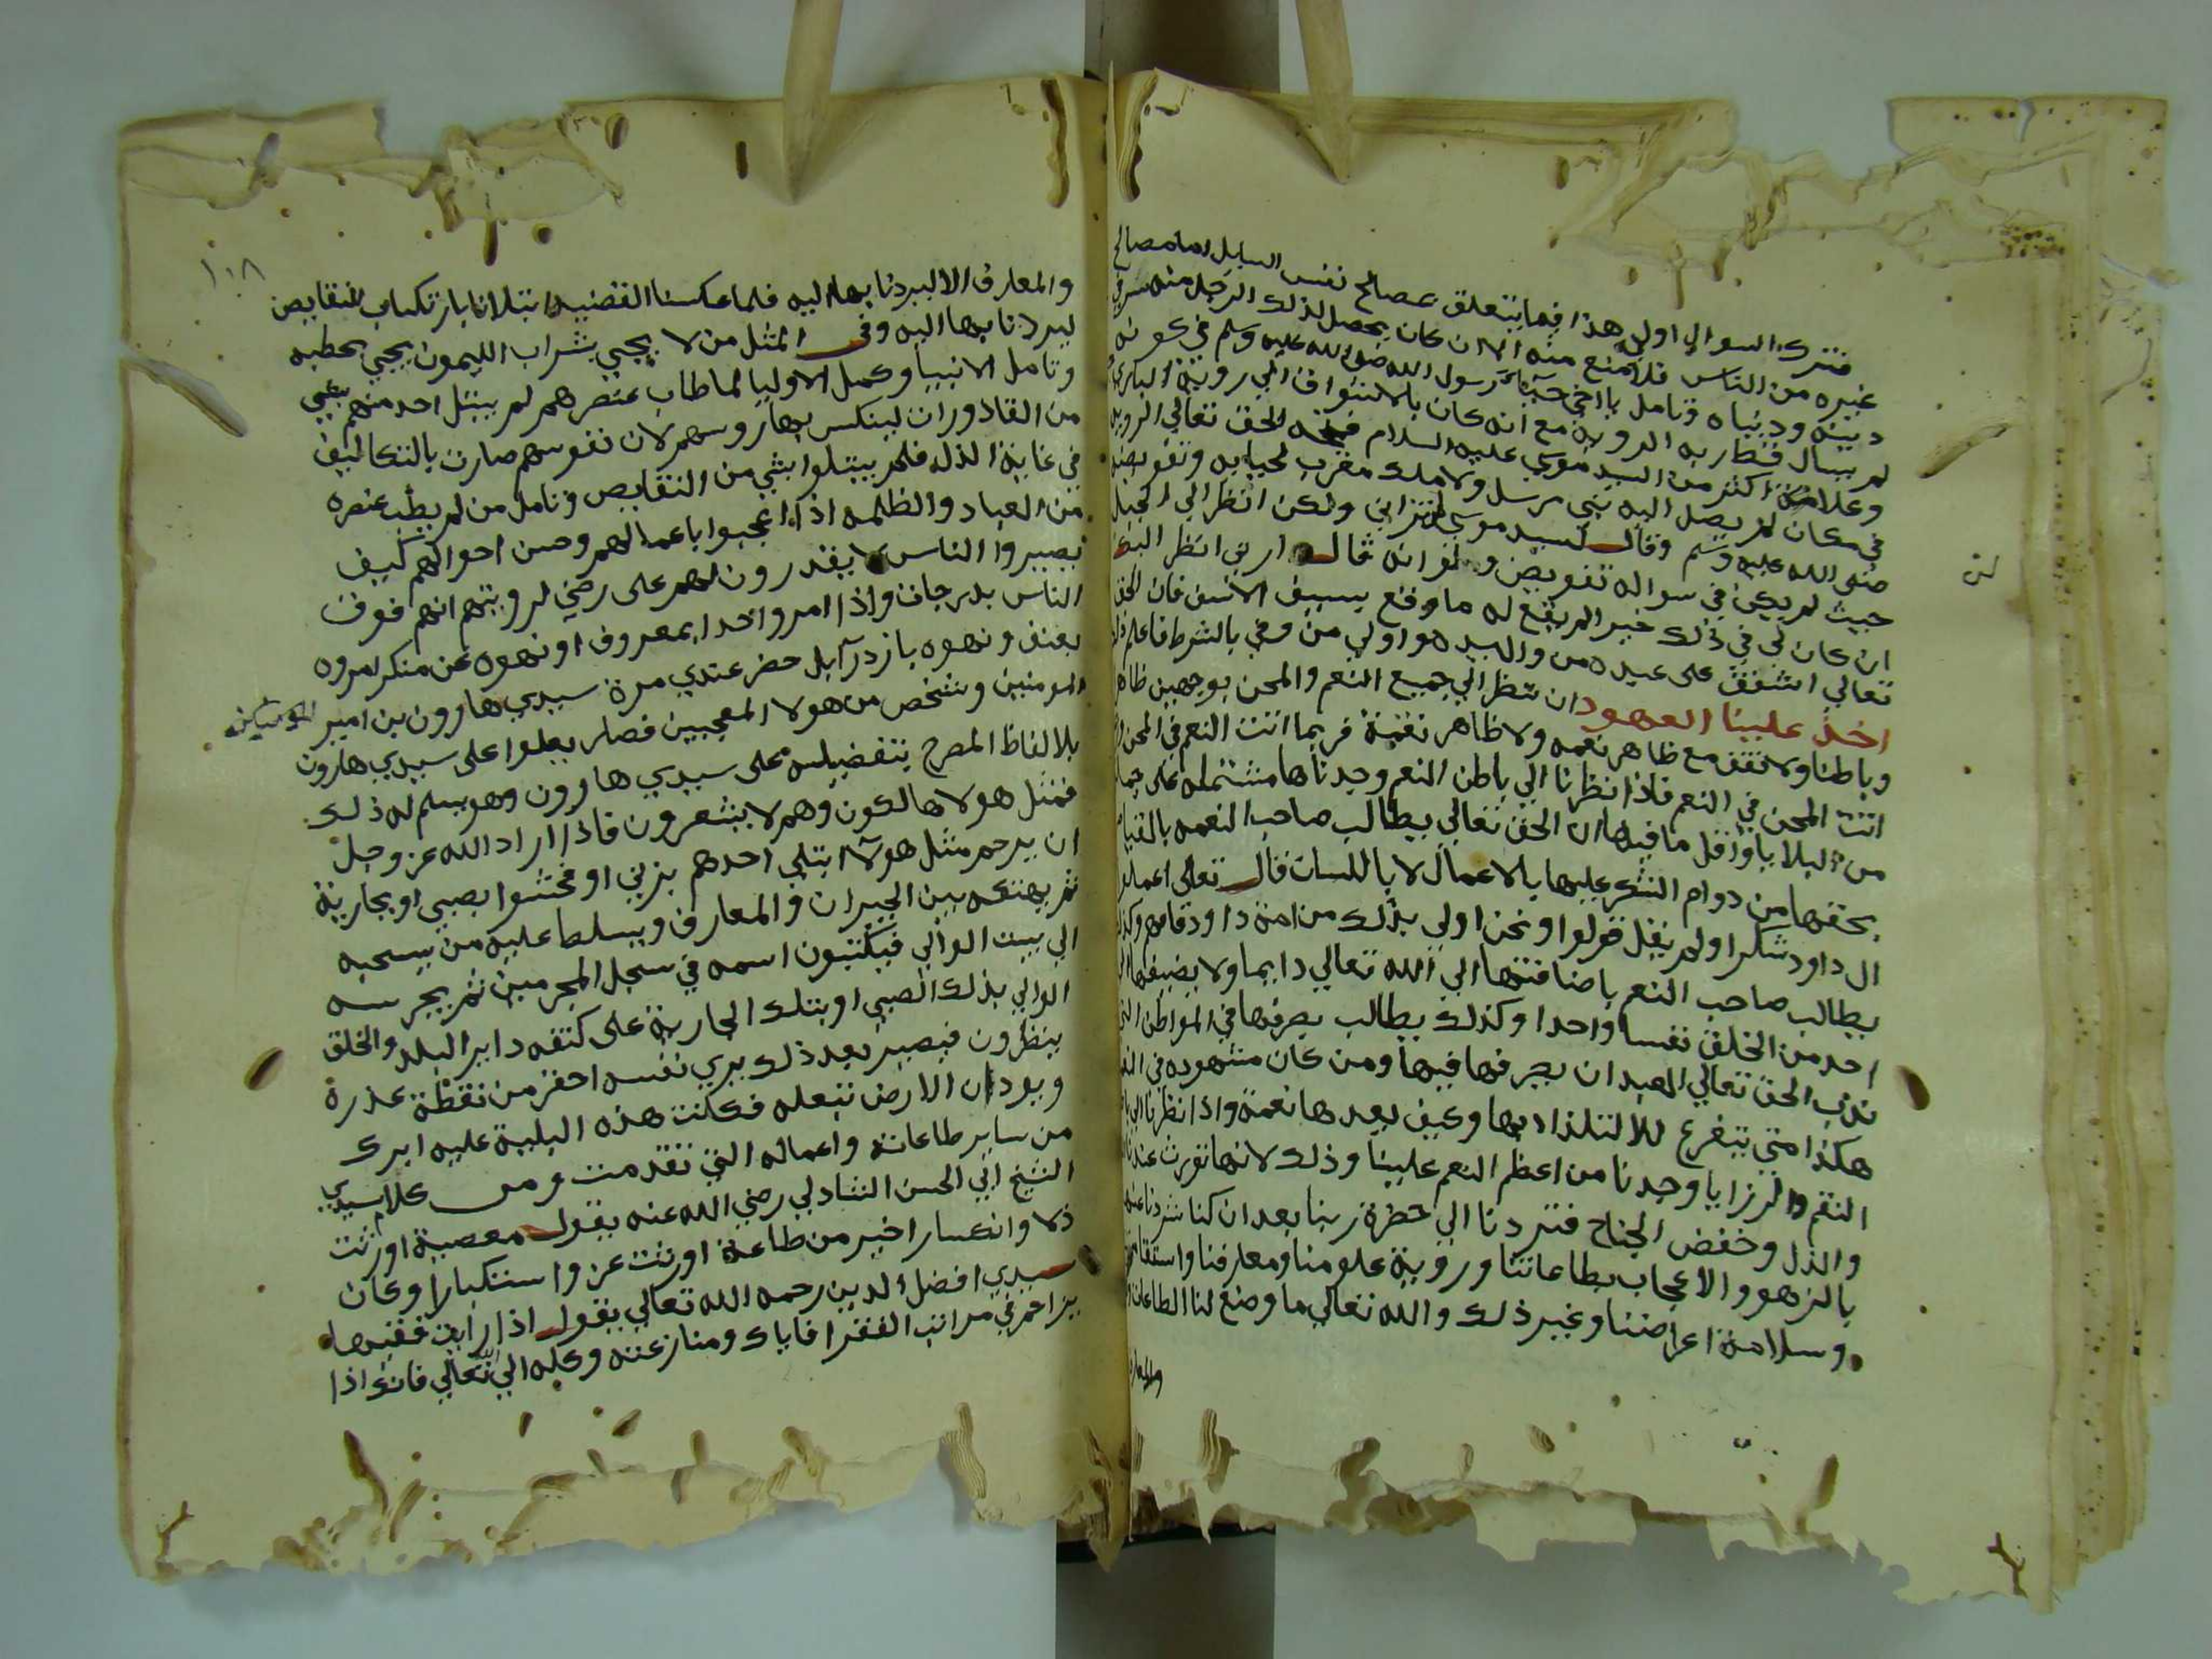 فترك السوال اولي هذا فيما يتعلق بمصالح نفس السايل اما مصالح
غيره من الناس فلا منع منه الا ان كان يحصل لذلك الرجل منه ضرر في
دينه ودنياه وتامل يا اخي رسول الله صلي الله عليه وسلم في كونه
لم يسال قط ربه الروية مع انه كان بالاشواق الي روية الباري
وكلامه اكثر من السيد موسي عليه السلام فمنحه الحق تعالي الروية
في مكان لم يصل اليه نبي مرسل ولا ملك مقرب لحيايه وتفويضه
صلي الله عليه وسلم وقال لسيد موسي لن تراني ولكن انظر الي الجبل
حيث لم يكن في سواله تفويض ولو انه قال ارني انظر اليك
ان كان لي في ذلك خير لم يقع له ما وقع بسيف الانسى فان الحق
تعالي اشفق على عبيده من والسيد هو اولي من وفي بالشرط فاعلم ذلك
اخذ علينا العهود ان ننظر الي جميع النعم والمحن بوجهين ظاهر
وباطنا ولا نقف مع ظاهر نعمه ولا ظاهر نقمة فربما اتت النعم في المحن
اتت المحن في النعم فاذا نظرنا الي باطن النعم وجدناها مشتمله على جملة
من البلايا واقل ما فيها ان الحق تعالي يطالب صاحب النعمه بالقيام
بحقها من دوام الشكر عليها بالاعمال لا باللسان قال تعالى اعملوا
ال داود شكرا ولم يقل قولوا ونحن اولي بذلك من امة داود فافهم وكذلك
يطالب صاحب النعم باضافتها الي الله تعالي دايما ولا يضيفها الي
احد من الخلق نفسا واحدا وكذلك يطالب بصرفها في المواطن التي
ندب الحق تعالي العبد ان يصرفها فيها ومن كان مشهوده في النعم
هكذا متي يتفرغ للالتلذاد بها وكيف يعدها نعمة واذا نظرنا الي باطن
النقم والرزايا وجدنا من اعظم النعم علينا وذلك لانها تورث عندنا
والذل وخفض الجناح فتردنا الي حضرة ربنا بعد ان كنا شردنا عنه
بالزهو والاعجاب بطاعاتنا وروية علومنا ومعارفنا واستقامة
وسلامة اعراضنا وغير ذلك والله تعالي ما وضع لنا الطاعات
والمعارف
والمعارف الا ليردنا بها اليه فلما عكسنا القضية ابتلانا بارتكاب النقايص
١٠٨
ليردنا بها اليه وفي المثل من لا يجي بشراب الليمون يجي بحطبه
وتامل الانبيا وكمل الاوليا لما طاب عنصرهم لم يبتل احد منهم بشي
من القاذورات لينكس بها روسهم لان نفوسهم صارت بالتكاليف
في غاية الذله فلم يبتلوا بشي من النقايص وتامل من لم يطب عنصره
من العباد والظلمه اذا اعجبوا باعمالهم وحسن احوالهم كيف
يصيروا الناس لا يقدرون لهم على رضي لرويتهم انهم فوق
الناس بدرجات واذا امروا احدا بمعروف او نهوه عن منكر امروه
بعنف ونهوه بازدرآ بل حضر عندي مرة سيدي هارون بن امير المومنين
المومنين وشخص من هولا المعجبين فصار يعلوا على سيدي هارون
بلالفاظ المصرح بتفضيله على سيدي هارون وهو يسلم له ذلك
فمثل هولا هالكون وهم لا يشعرون فاذا اراد الله عز وجل
ان يرحم مثل هولآ ابتلي احدهم بزني او فحشوا بصبي او بجارية
ثم يهتكه بين الجيران والمعارف ويسلط عليه من يسحبه
الي بيت الوالي فيكتبون اسمه في سجل المجرمين ثم يجرسه
الوالي بذلك الصبي او بتلك الجارية على كتفه داير البلد والخلق
ينظرون فيصير بعد ذلك يري نفسه احقر من نقطة عذرة
ويود ان الارض تبتعله فكانت هذه البلية عليه ابرك
من ساير طاعاته واعماله التي تقدمت ومن كلام سيدي
الشيخ ابي الحسن الشادلي رضي الله عنه يقول معصية اورثت
ذلا وانكسارا خير من طاعة اورثت عز واستكبارا وكان
سيدي افضل الدين رحمه الله تعالي يقول اذا رايت فقيها
يزاحم في مراتب الفقرا فاياك ومنازعته وكله الي تعالي فانه اذا